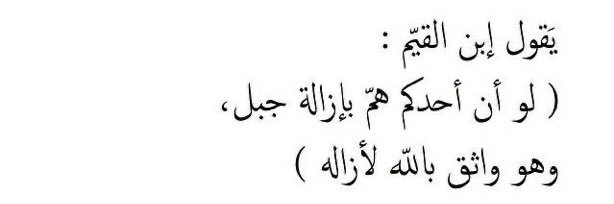 يَقول إبن القيّم :
( لو أن أحدكم همّ بإزالة جبل،
وهو واثق بالله لأزاله )